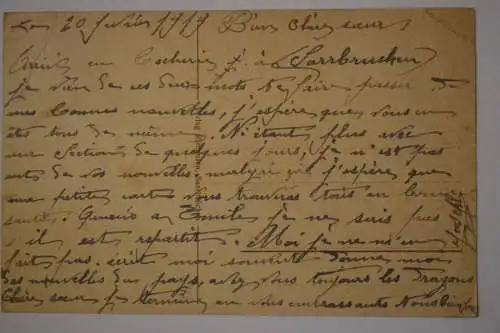 Le 20 février 1919 Bien chère sœur
en à Sarrbrucken
je viens de ces deux mots te faire passer de
mes bonnes nouvelles, j'espère que vous en
êtes tous de même. N'étant plus avec
ma section de quelques jours, je n'est pas
de vos nouvelles, malgré j'espère que
ma petite carte vous trouvera tous en bonne
santé, à Emile je ne sais pas
s'il est repartit. Moi je ne m'en
fait pas. écrit moi souvent donne moi
des nouvelles du pays, avez vous toujours les Dragons
Chère sœur je termine en vous embrassant